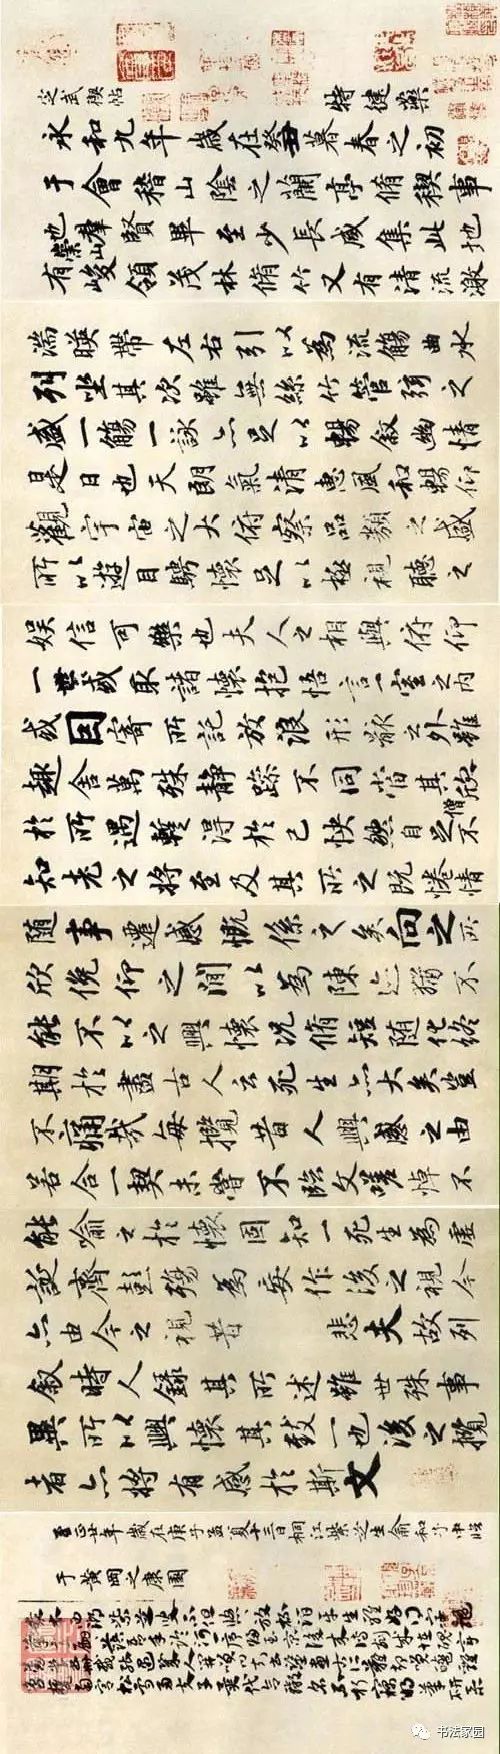 定武稧帖 特健藥
永和九年歲在癸丑暮春之初
于會稽山陰之蘭亭脩稧事
也羣賢畢至少長咸集此地
有崇山峻領茂林脩竹又有清流激
湍暎帶左右引以為流觴曲水
列坐其次雖無絲竹管弦之
盛一觴一詠亦足以暢敘幽情
是日也天朗氣清惠風和暢仰
觀宇宙之大俯察品類之盛
所以遊目騁懷足以極視聽之
娛信可樂也夫人之相與俯仰
一世或取諸懷抱悟言一室之內
或因寄所託放浪形骸之外雖
趣舍萬殊靜躁不同當其欣
僧
於所遇蹔得於己怏然自足不
知老之將至及其所之既惓情
隨事遷感慨係之矣向之所
欣俛仰之閒以為陳迹猶不
能不以之興懷況脩短隨化終
期於盡古人云死生亦大矣豈
不痛哉每攬昔人興感之由
若合一契未嘗不臨文嗟悼不
能喻之於懷固知一死生為虛
誕齊彭殤為妄作後之視今
亦由今之視昔悲夫故列
敘時人錄其所述雖世殊事
異所以興懷其致一也後之攬
者亦將有感於斯文
至正廿年歲在庚子孟夏十三日桐江紫芝生俞和子中臨
于黃岡之康園
书法家园